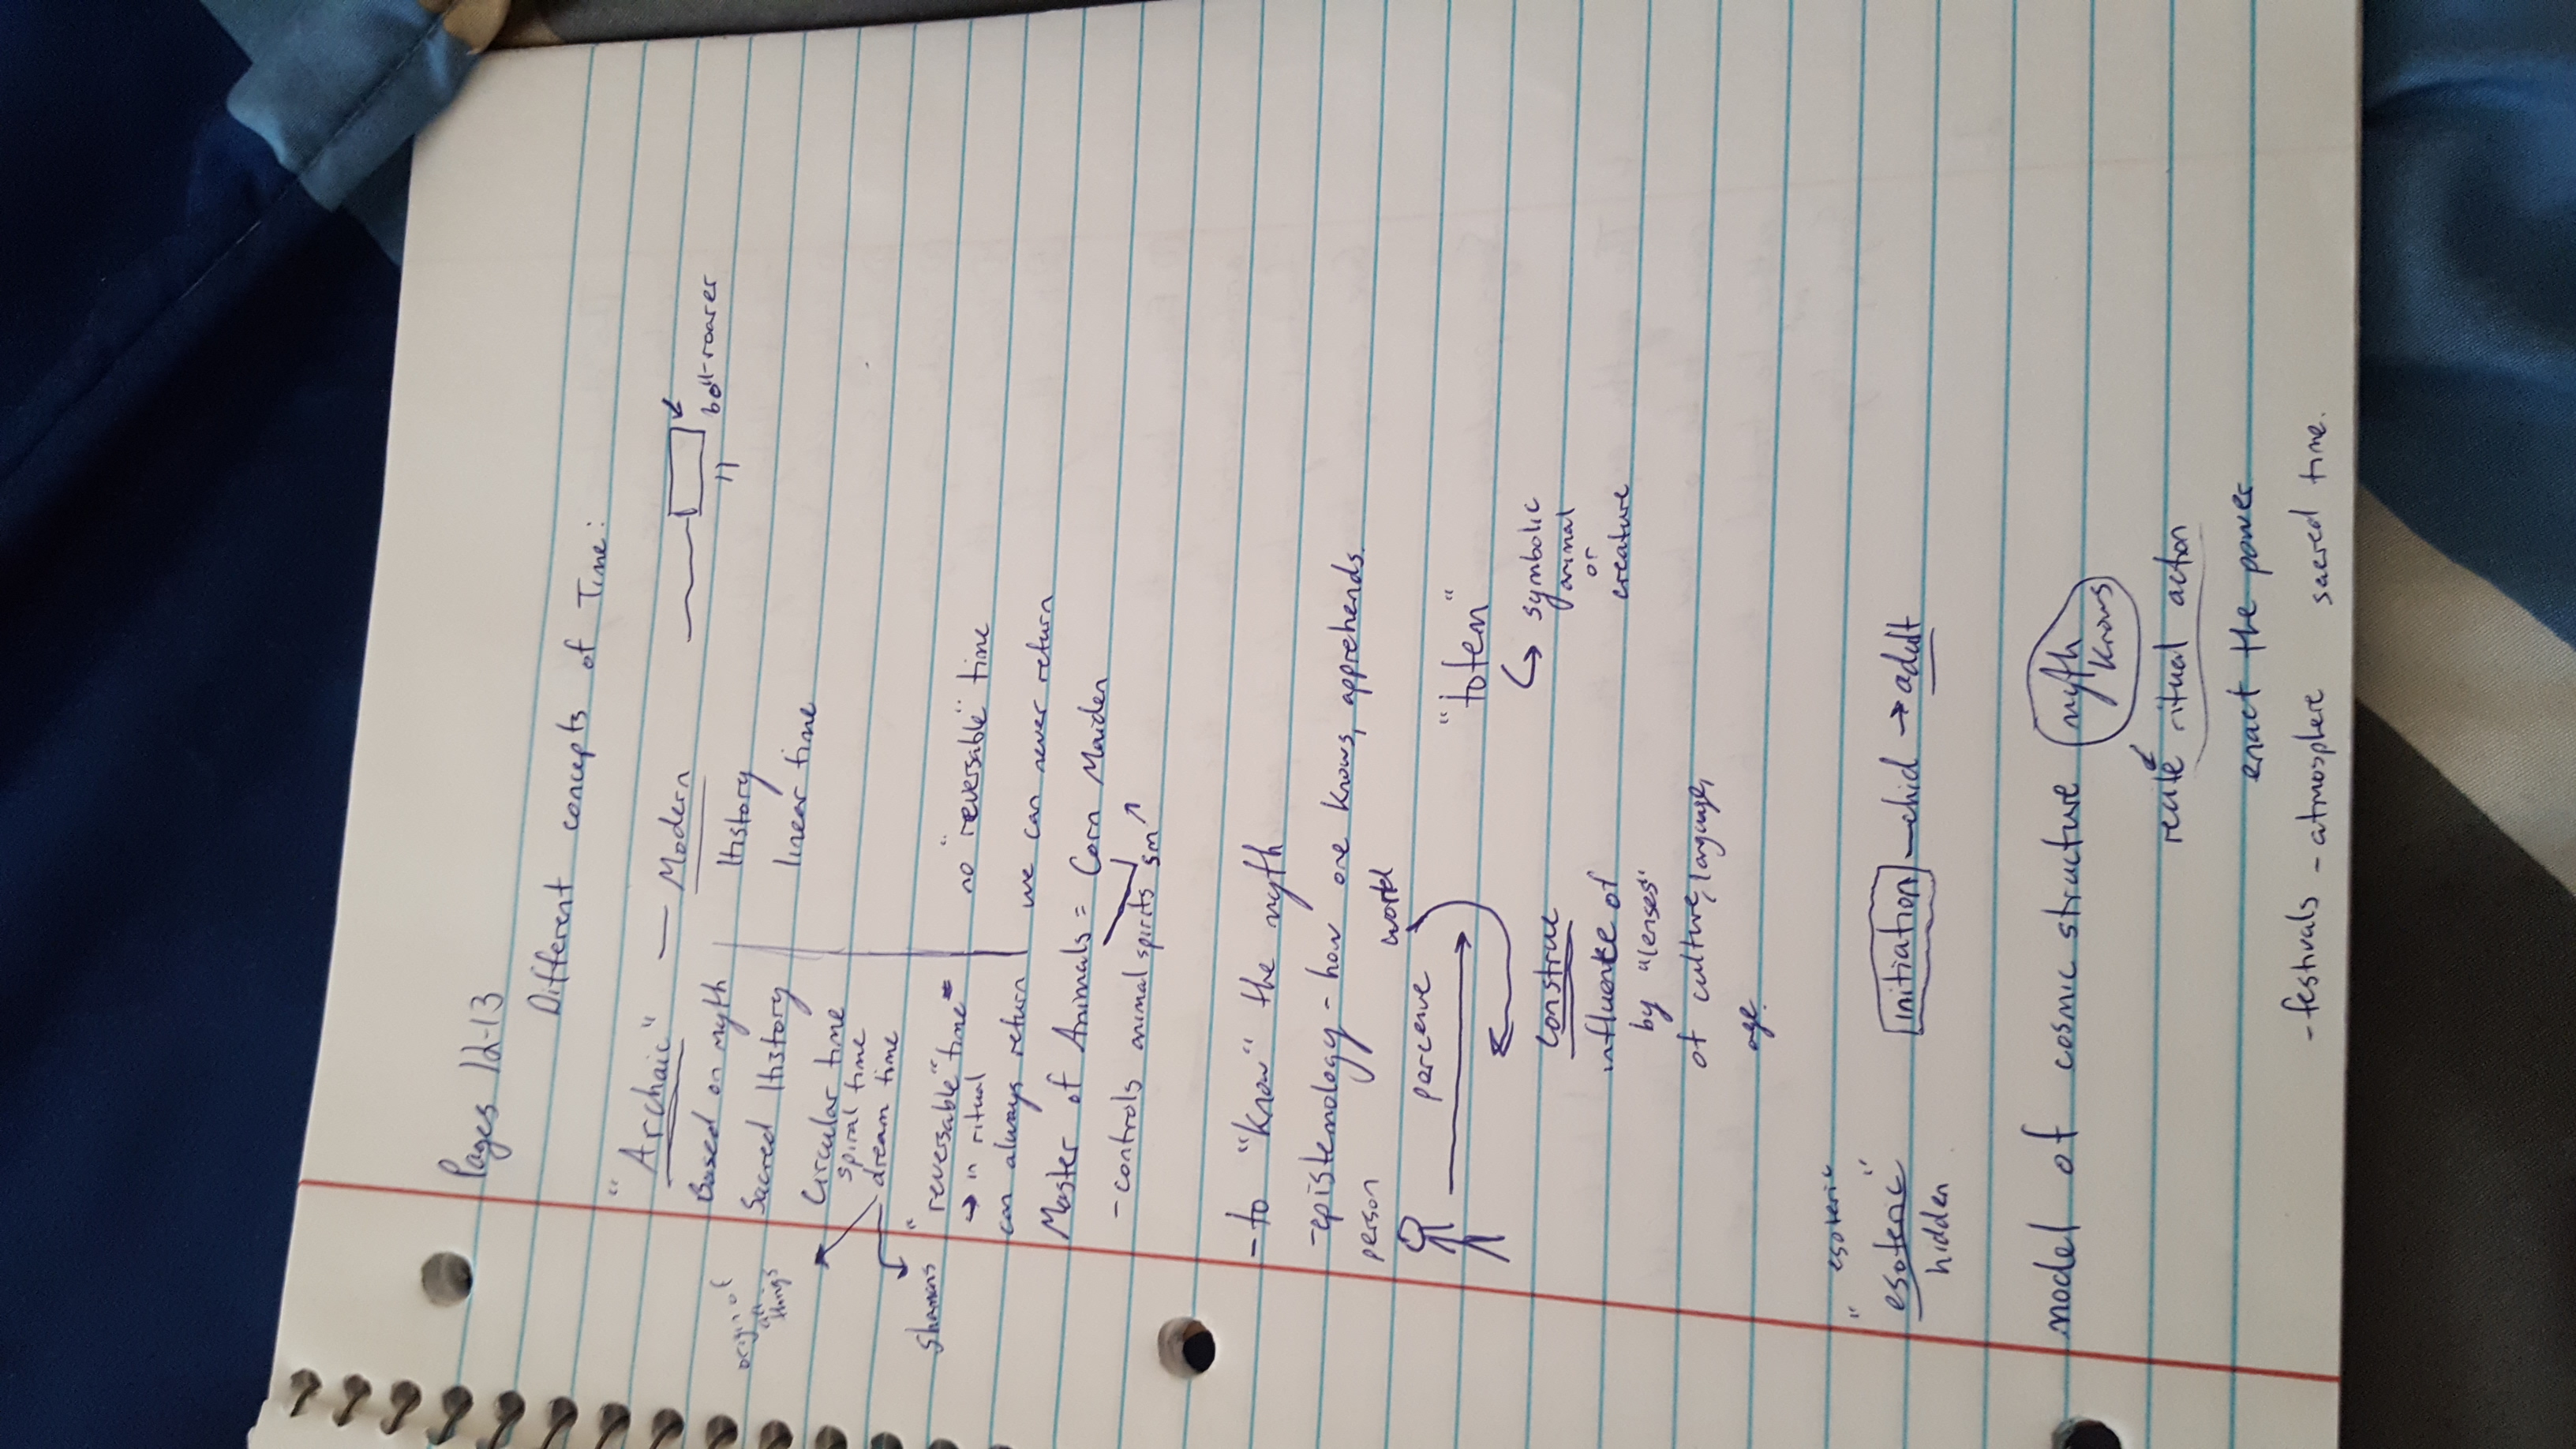 Pages 12-13
Different concepts of Time:
"Archaic" — Modern
boll-roarer
Based on myth
History
origin of
all
things
Sacred History
linear time
Circular time
spiral time
dream time
Shamans
"reversable" time
no "reversable" time
→ in ritual
can always return
we can never return
Master of Animals = Corn Maiden
- controls animal spirits sm
- to "know" the myth
- epistemology - how one knows, apprehends.
person
world
perceive
"totem"
construe
symbolic
animal
or
creature
influence of
by "lenses"
of culture, language,
age.
esoteric
"esoteric"
hidden
initiation — chid → adult
model of cosmic structure
myth
knows
recite ritual action
enact the power
- festivals - atmosphere sacred time.